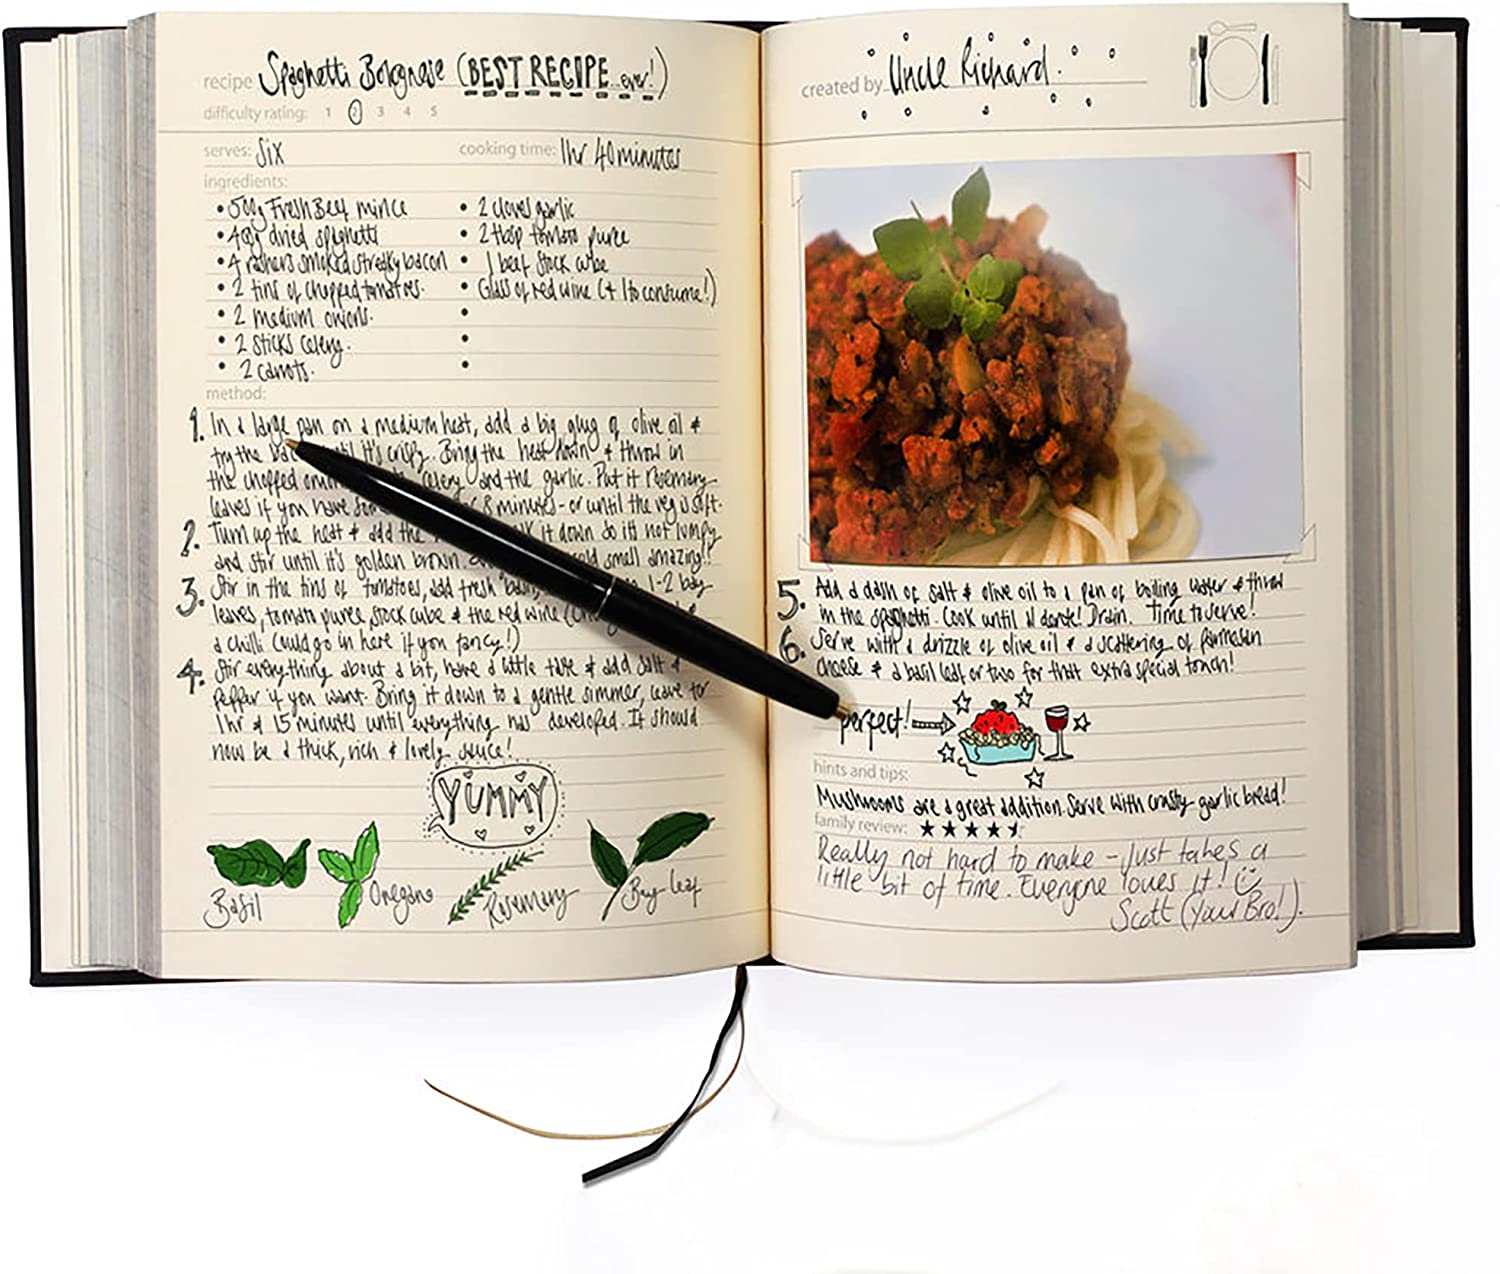 recipe Spaghetti Bolognase (BEST RECIPE...ever!)
difficulty rating: 1 2 3 4 5
serves: Six cooking time: 1hr 40minutes
ingredients:
• 500g Fresh Beef mince
• 400g dried spaghetti
• 4 rashers smoked streaky bacon
• 2 tins of chopped tomatoes.
• 2 medium onions.
• 2 sticks celery.
• 2 carrots.
• 2 cloves garlic
• 2 tbsp tomato puree
• 1 beef stock cube
• Glass of red wine (+ 1 to consume!)
•
•
•
method:
1. In a large pan on a medium heat, add a big glug of olive oil &
fry the until it's crispy. Bring the heat down & throw in
the chopped celery and the garlic. Put it rosemary
leaves if you have 8 minutes - or until the veg is soft.
2. Turn up the heat & add the it down so it's not lumpy
and stir until it's golden brown. smell amazing!!
3. Stir in the tins of tomatoes, add fresh basil, 1-2 bay
leaves, tomato puree, stock cube & the red wine
a chilli could go in here if you fancy!)
4. Stir everything about a bit, have a little taste & add salt &
pepper if you want. Bring it down to a gentle simmer, leave for
1hr & 15 minutes until everything has developed. It should
now be a thick, rich & lovely sauce!
YUMMY
Basil Oregano Rosemary Bay leaf
created by Uncle Richard.
5. Add a dash of salt & olive oil to a pan of boiling water & throw
in the spaghetti. Cook until al dente! Drain. Time to serve!
6. Serve with a drizzle of olive oil & a scattering of parmesan
cheese & a basil leaf or two for that extra special touch!
perfect!
hints and tips:
Mushrooms are a great addition. Serve with crusty garlic bread!
family review:
Really not hard to make - Just takes a
little bit of time. Everyone loves it!
Scott (Your Bro!).